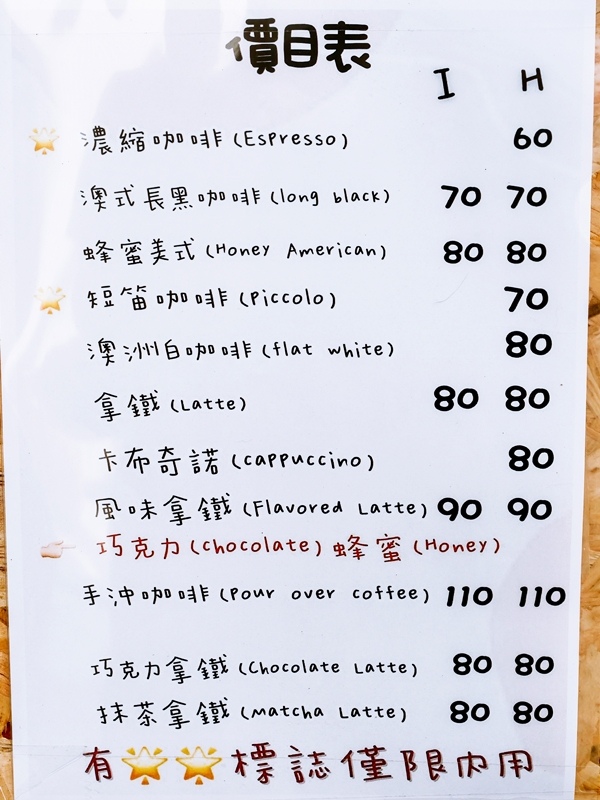 價目表
I H
濃縮咖啡 (Espresso) 60
澳式長黑咖啡 (long black) 70 70
蜂蜜美式 (Honey American) 80 80
短笛咖啡 (Piccolo) 70
澳洲白咖啡 (flat white) 80
拿鐵 (Latte) 80 80
卡布奇諾 (cappuccino) 80
風味拿鐵 (Flavored Latte) 90 90
巧克力 (chocolate) 蜂蜜 (Honey)
手沖咖啡 (Pour over coffee) 110 110
巧克力拿鐵 (Chocolate Latte) 80 80
抹茶拿鐵 (Matcha Latte) 80 80
有🌟🌟標誌僅限內用